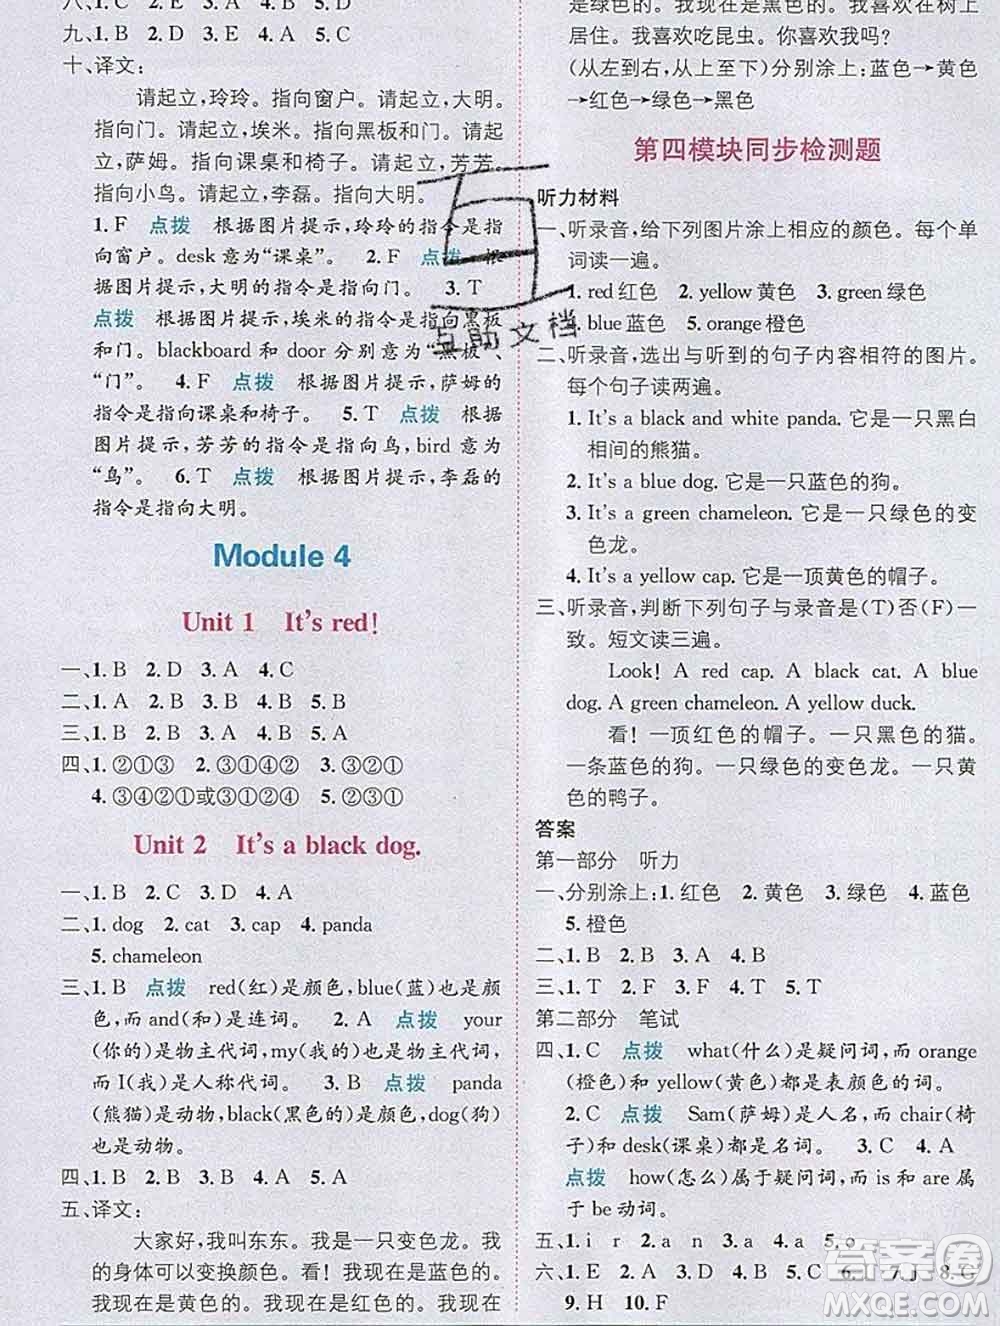 八、1. C 2. E 3. A 4. D 5. B
九、1. B 2. D 3. A 4. A 5. C
十、译文:
请起立,玲玲。指向窗户。请起立,大明。
指向门。请起立,埃米。指向黑板和门。请起
立,萨姆。指向课桌和椅子。请起立,芳芳。
指向小鸟。请起立,李磊。指向大明。
1. F 点拨 根据图片提示,玲玲的指令是指
向窗户。desk 意为“课桌”。 2. F 点拨 根
据图片提示,大明的指令是指向门。 3. T
点拨 根据图片提示,埃米的指令是指向黑板
和门。blackboard 和 door 分别意为“黑板”、
“门”。 4. F 点拨 根据图片提示,萨姆的
指令是指向课桌和椅子。 5. T 点拨 根据
图片提示,芳芳的指令是指向鸟,bird 意为
“鸟”。 6. T 点拨 根据图片提示,李磊的指
令是指向大明。
Module 4
Unit 1 It's red!
一、1. B 2. D 3. A 4. C
二、1. A 2. B 3. B 4. A 5. B
三、1. D 2. C 3. A 4. B
四、1. ②①③ 2. ③①④② 3. ②①③
4. ③④②①或③①②④ 5. ①②③
Unit 2 It's a black dog.
一、1. B 2. C 3. D 4. A
二、1. dog 2. cat 3. cap 4. panda
5. chameleon
三、1. B 点拨 red(红)是颜色,blue(蓝)也是颜
色,而 and(和)是连词。 2. A 点拨 your
(你的)是物主代词,my(我的)也是物主代词,
而 I(我)是人称代词。 3. B 点拨 panda
(熊猫)是动物,black(黑色的)是颜色,dog(狗)
也是动物。
四、1. B 2. B 3. A 4. A 5. B
五、译文:
大家好,我叫东东。我是一只变色龙。我
的身体可以变换颜色。看!我现在是蓝色的。
我现在是黄色的。我现在是红色的。我现在
是绿色的。我现在是黑色的。我喜欢在树上
居住。我喜欢吃昆虫。你喜欢我吗?
(从左到右,从上到下)分别涂上:蓝色→黄色
→红色→绿色→黑色
第四模块同步检测题
听力材料
一、听录音,给下列图片涂上相应的颜色。每个单
词读一遍。
1. red 红色 2. yellow 黄色 3. green 绿色
4. blue 蓝色 5. orange 橙色
二、听录音,选出与听到的句子内容相符的图片。
每个句子读两遍。
1. It's a black and white panda. 它是一只黑白
相间的熊猫。
2. It's a blue dog. 它是一只蓝色的狗。
3. It's a green chameleon. 它是一只绿色的变
色龙。
4. It's a yellow cap. 它是一顶黄色的帽子。
三、听录音,判断下列句子与录音是(T)否(F)一
致。短文读三遍。
Look! A red cap. A black cat. A blue
dog. A green chameleon. A yellow duck.
看!一顶红色的帽子。一只黑色的猫。
一条蓝色的狗。一只绿色的变色龙。一只黄
色的鸭子。
答案
第一部分 听力
一、分别涂上:1. 红色 2. 黄色 3. 绿色 4. 蓝色
5. 橙色
二、1. B 2. B 3. A 4. B
三、1. T 2. F 3. F 4. T 5. T
第二部分 笔试
四、1. C 点拨 what(什么)是疑问词,而 orange
(橙色)和 yellow(黄色)都是表颜色的词。
2. C 点拨 Sam(萨姆)是人名,而 chair(椅
子)和 desk(课桌)都是名词。 3. C 4. A
点拨 how(怎么)属于疑问词,而 is 和 are 属
于 be 动词。
五、1. i r 2. a n 3. a 4. a 5. o
六、1. E 2. A 3. B 4. D 5. C 6. I 7. J 8. G
9. H 10. F
互助文档
答案圈
MXQE.COM